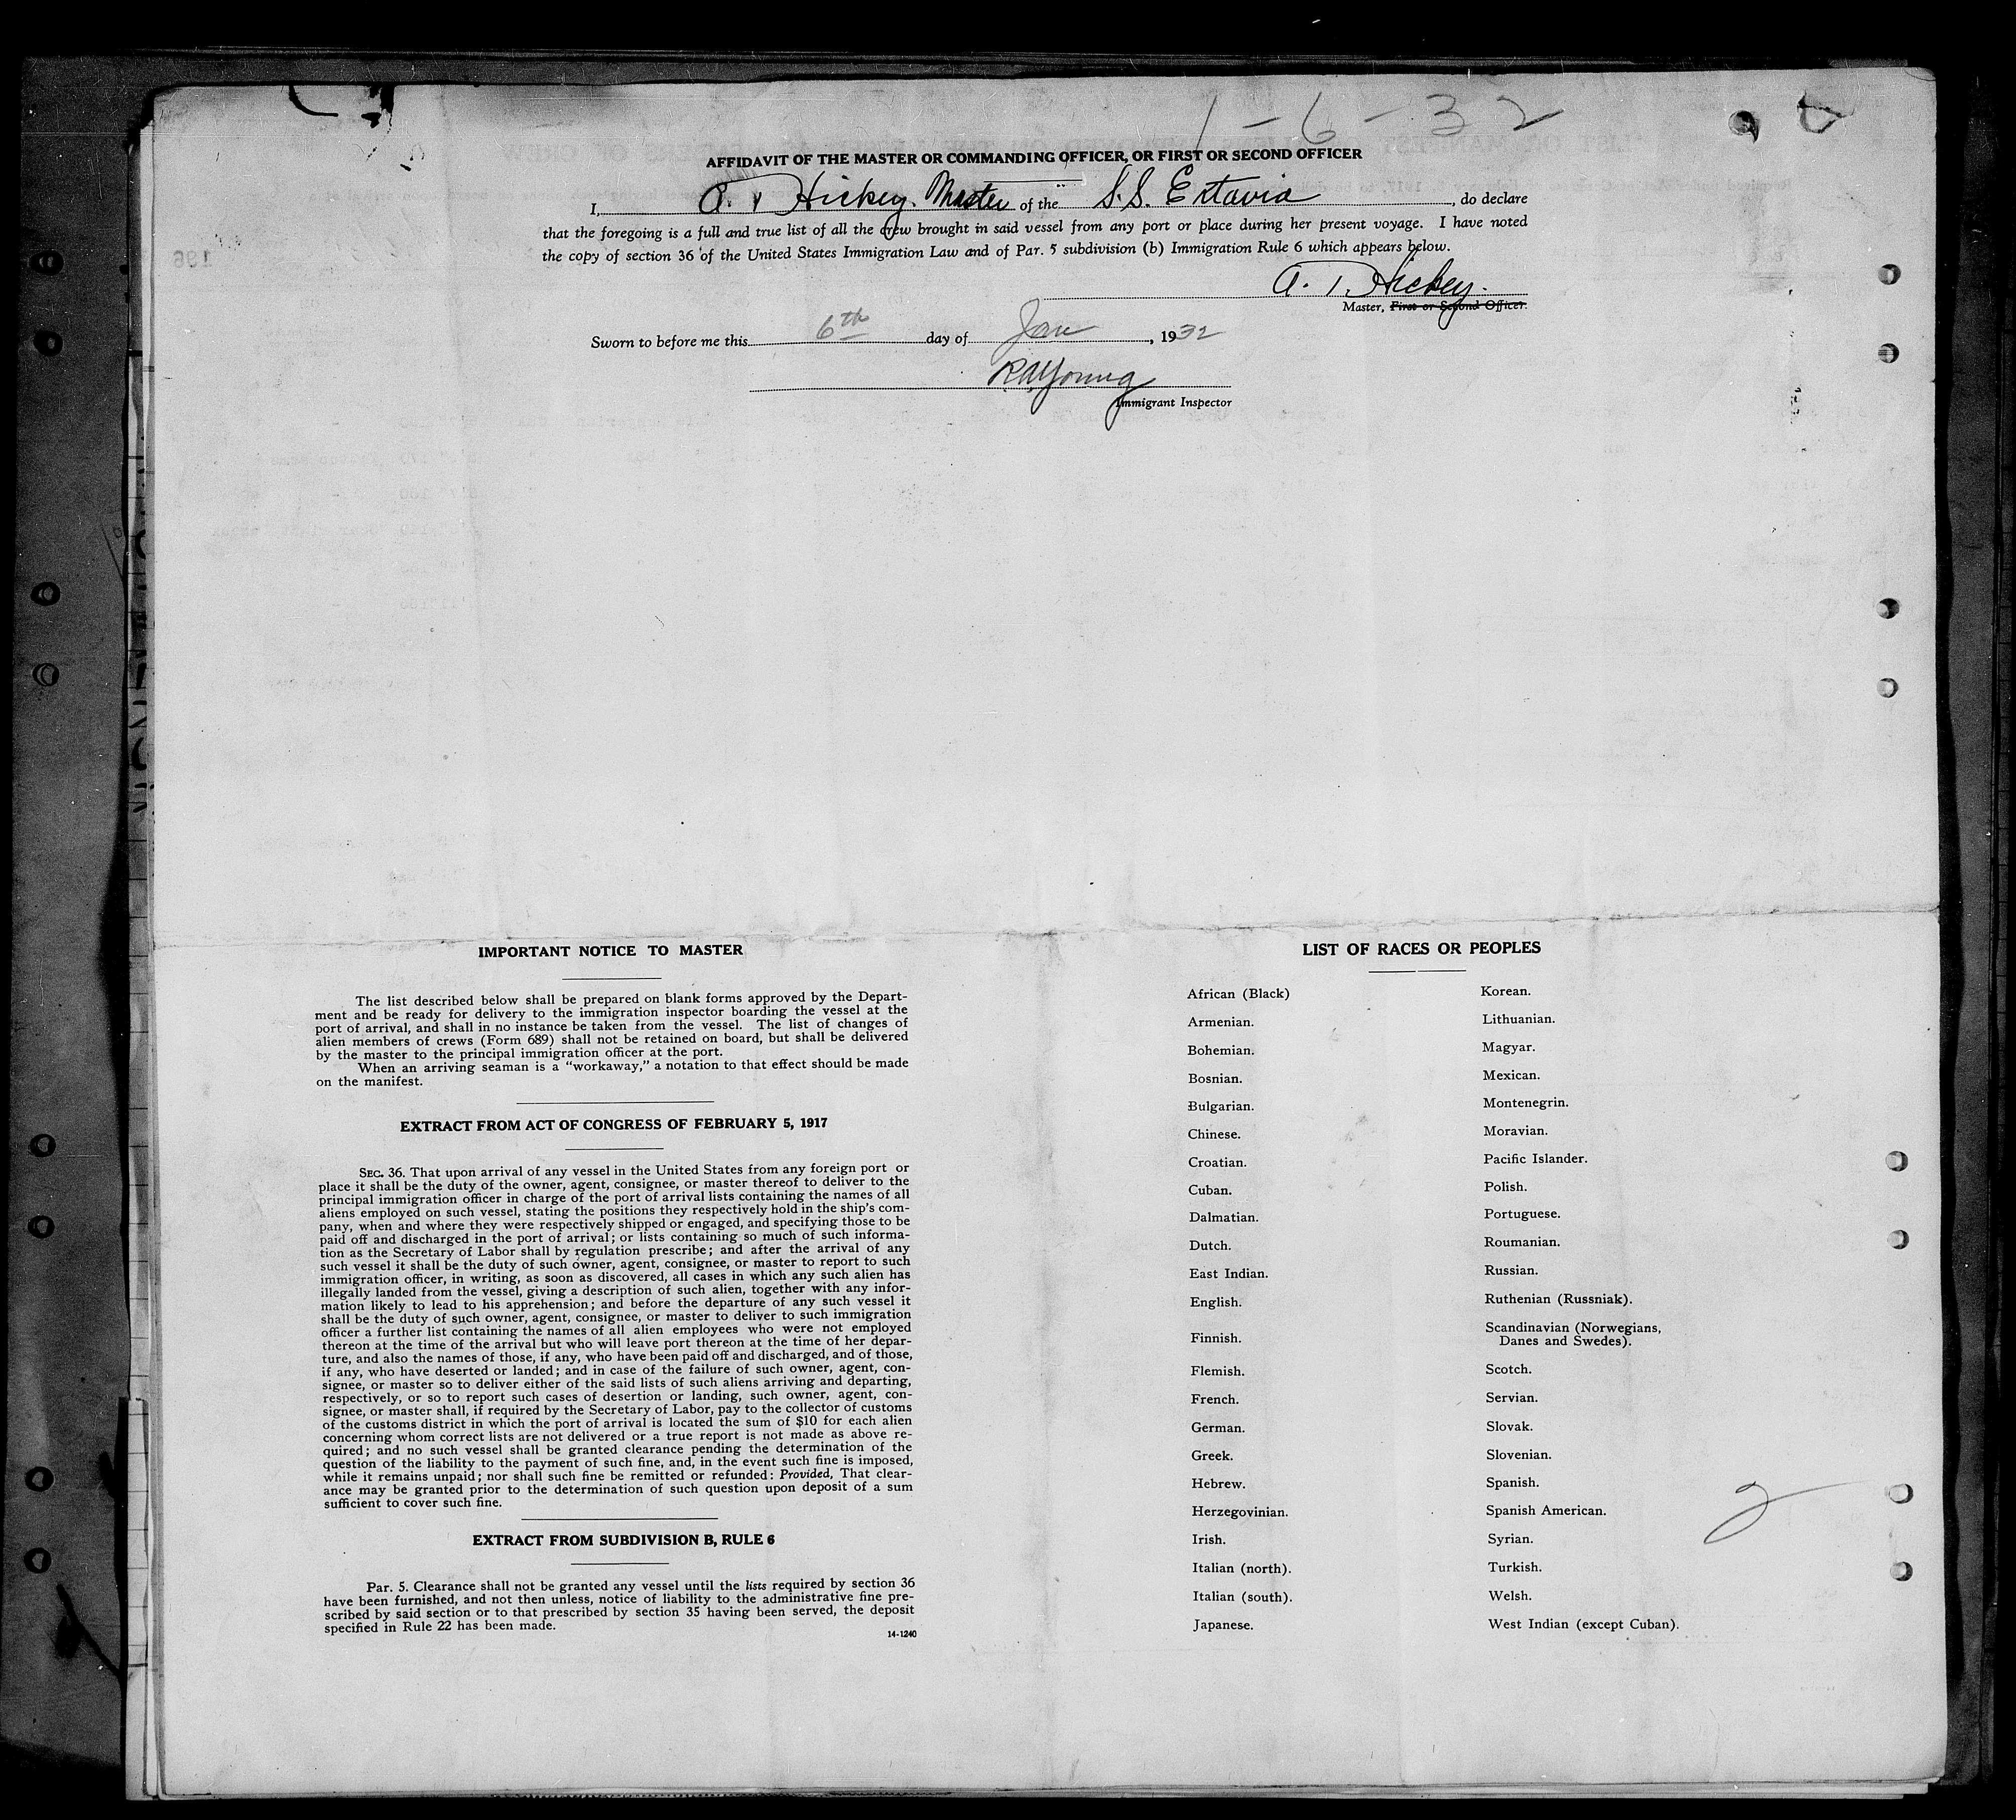 1-6-32
AFFIDAVIT OF THE MASTER OR COMMANDING OFFICER, OR FIRST OR SECOND OFFICER
I, A. Hickey. Master of the S.S. Extavia, do declare
that the foregoing is a full and true list of all the crew brought in said vessel from any port or place during her present voyage. I have noted
the copy of section 36 of the United States Immigration Law and of Par. 5 subdivision (b) Immigration Rule 6 which appears below.
A. Hickey.
Master, First or Second Officer.
Sworn to before me this 6th day of Jan, 1932
R.A. Young
Immigrant Inspector
IMPORTANT NOTICE TO MASTER
The list described below shall be prepared on blank forms approved by the Depart-
ment and be ready for delivery to the immigration inspector boarding the vessel at the
port of arrival, and shall in no instance be taken from the vessel. The list of changes of
alien members of crews (Form 689) shall not be retained on board, but shall be delivered
by the master to the principal immigration officer at the port.
When an arriving seaman is a "workaway," a notation to that effect should be made
on the manifest.
EXTRACT FROM ACT OF CONGRESS OF FEBRUARY 5, 1917
SEC. 36. That upon arrival of any vessel in the United States from any foreign port or
place it shall be the duty of the owner, agent, consignee, or master thereof to deliver to the
principal immigration officer in charge of the port of arrival lists containing the names of all
aliens employed on such vessel, stating the positions they respectively hold in the ship's com-
pany, when and where they were respectively shipped or engaged, and specifying those to be
paid off and discharged in the port of arrival; or lists containing so much of such informa-
tion as the Secretary of Labor shall by regulation prescribe; and after the arrival of any
such vessel it shall be the duty of such owner, agent, consignee, or master to report to such
immigration officer, in writing, as soon as discovered, all cases in which any such alien has
illegally landed from the vessel, giving a description of such alien, together with any infor-
mation likely to lead to his apprehension; and before the departure of any such vessel it
shall be the duty of such owner, agent, consignee, or master to deliver to such immigration
officer a further list containing the names of all alien employees who were not employed
thereon at the time of the arrival but who will leave port thereon at the time of her depar-
ture, and also the names of those, if any, who have been paid off and discharged, and of those,
if any, who have deserted or landed; and in case of the failure of such owner, agent, con-
signee, or master so to deliver either of the said lists of such aliens arriving and departing,
respectively, or so to report such cases of desertion or landing, such owner, agent, con-
signee, or master shall, if required by the Secretary of Labor, pay to the collector of customs
of the customs district in which the port of arrival is located the sum of $10 for each alien
concerning whom correct lists are not delivered or a true report is not made as above re-
quired; and no such vessel shall be granted clearance pending the determination of the
question of the liability to the payment of such fine, and, in the event such fine is imposed,
while it remains unpaid; nor shall such fine be remitted or refunded: Provided, That clear-
ance may be granted prior to the determination of such question upon deposit of a sum
sufficient to cover such fine.
EXTRACT FROM SUBDIVISION B, RULE 6
Par. 5. Clearance shall not be granted any vessel until the lists required by section 36
have been furnished, and not then unless, notice of liability to the administrative fine pre-
scribed by said section or to that prescribed by section 35 having been served, the deposit
specified in Rule 22 has been made.
14-1240
LIST OF RACES OR PEOPLES
African (Black)
Armenian.
Bohemian.
Bosnian.
Bulgarian.
Chinese.
Croatian.
Cuban.
Dalmatian.
Dutch.
East Indian.
English.
Finnish.
Flemish.
French.
German.
Greek.
Hebrew.
Herzegovinian.
Irish.
Italian (north).
Italian (south).
Japanese.
Korean.
Lithuanian.
Magyar.
Mexican.
Montenegrin.
Moravian.
Pacific Islander.
Polish.
Portuguese.
Roumanian.
Russian.
Ruthenian (Russniak).
Scandinavian (Norwegians,
Danes and Swedes).
Scotch.
Servian.
Slovak.
Slovenian.
Spanish.
Spanish American.
Syrian.
Turkish.
Welsh.
West Indian (except Cuban).